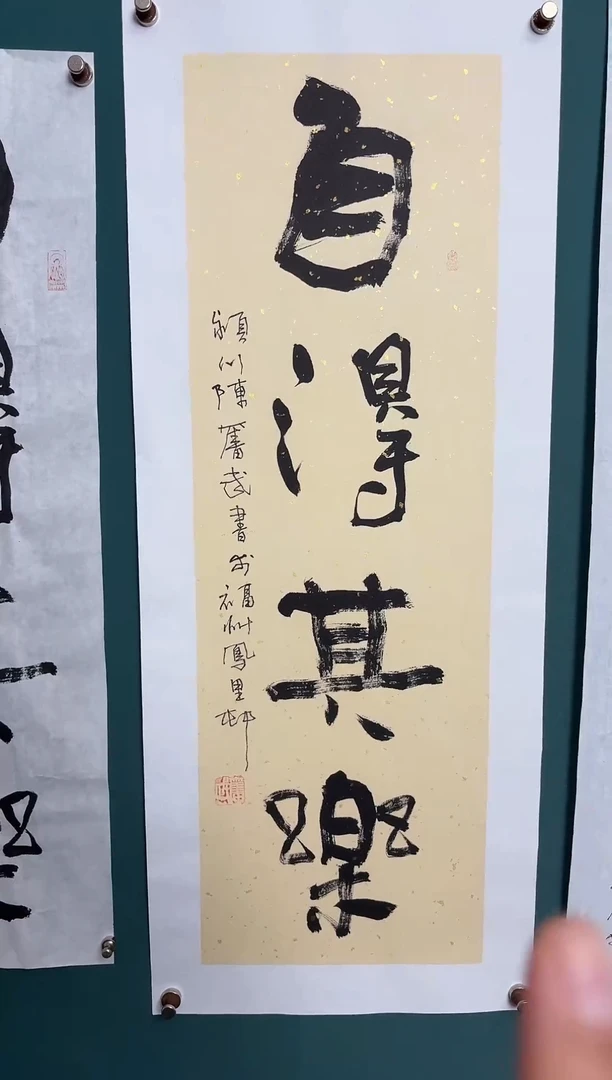 自得其樂
潁川陳奮武書於福州鳳里邨